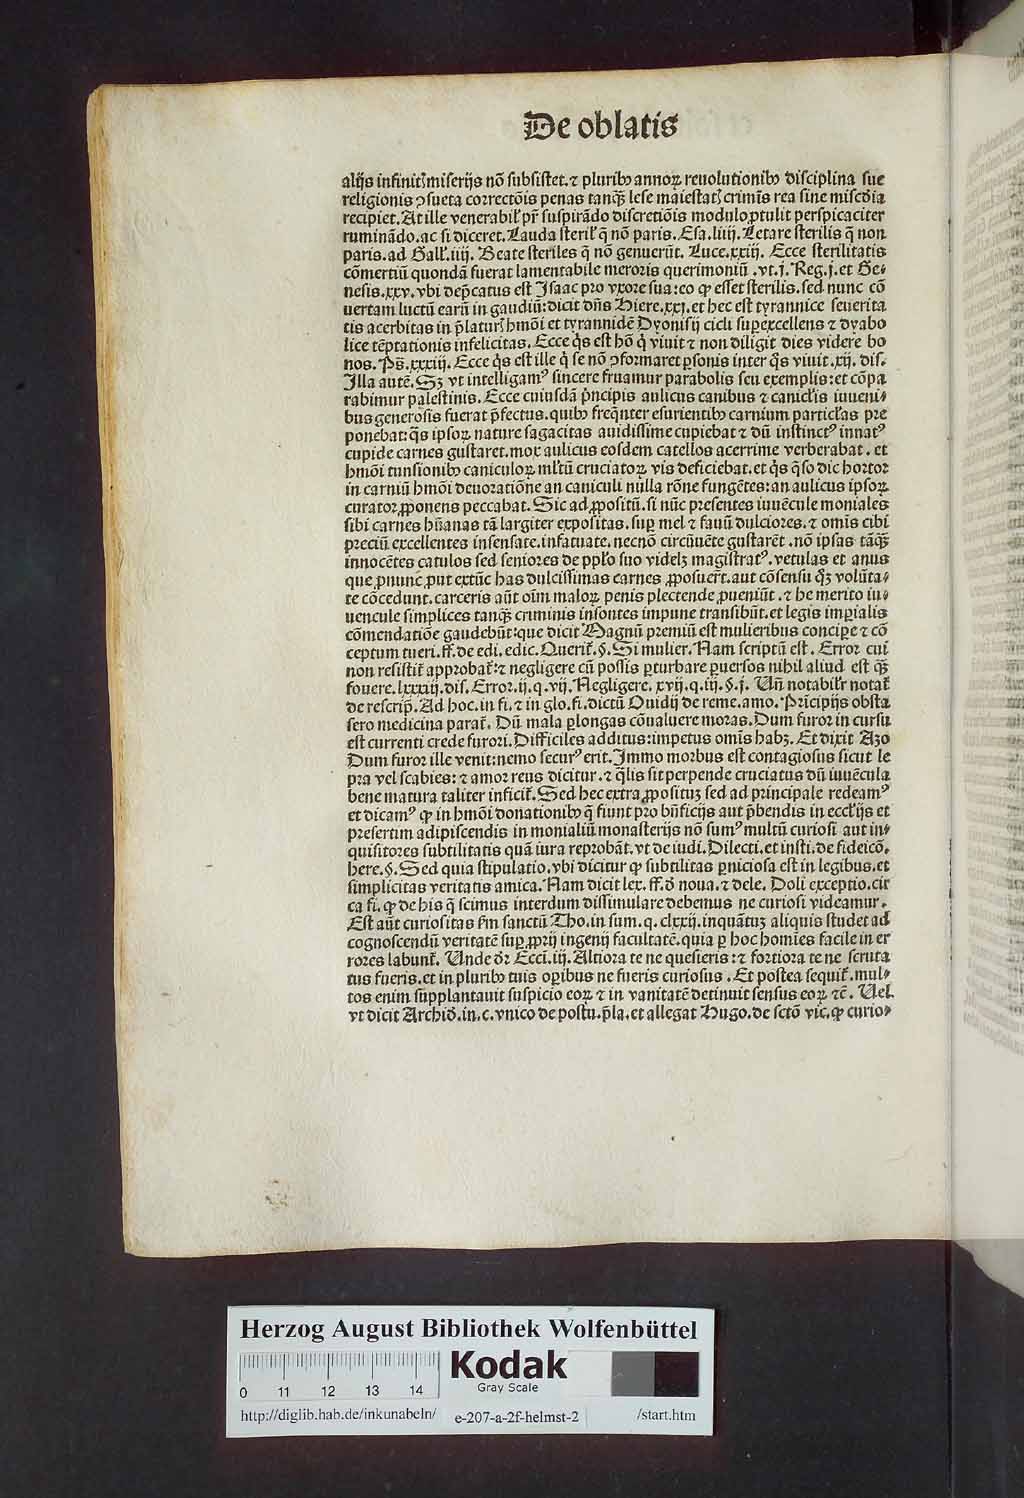 De oblatis
alijs infinitꝰ miserijs nō subsistet. ⁊ pluribꝰ annoꝝ reuolutionibꝰ disciplina sue
religionis ꝯsueta correctōis penas tanqꝫ lese maiestatꝭ crimīs rea sine misc̄dia
recipiet. At ille venerabil̓ pr̄ suspirādo discretiōis modulo ꝓtulit perspicaciter
ruminādo. ac si diceret. Lauda steril̓ q̄ nō paris. Esa. liiij. Letare sterilis q̄ non
paris. ad Gall̓. iiij. Beate steriles q̄ nō genuerūt. Luce. xxiij. Ecce sterilitatis
cōmertiū quondā fuerat lamentabile meroris querimoniū . vt. j. Reg. j. et Ge⸗
nesis. xxv. vbi dep̄catus est Isaac pro vxore sua: eo ꝙ esset sterilis. sed nunc cō
uertam luctū earū in gaudiū: dicit dn̄s Hiere. xxj. et hec est tyrannice seuerita
tis acerbitas in p̄laturꝭ hmōi et tyrannidē Dyonisij cicli suꝑexcellens ⁊ dyabo
lice tēptationis infelicitas. Ecce q̇s est hō q̇ viuit ⁊ non diligit dies videre bo
nos. Ps̄. xxxiij. Ecce q̇s est ille q̇ se nō ꝯformaret ꝑsonis inter q̇s viuit. xij. dis.
Illa autē. Sꝫ vt intelligamꝰ sincere fruamur parabolis seu exemplis: et cōpa
rabimur palestinis. Ecce cuiusdā p̄ncipis aulicus canibus ⁊ canicl̓is iuueni⸗
bus generosis fuerat p̄fectus. quibꝰ freq̄nter esurientibꝰ carnium particl̓as pre
ponebat: q̇s ipsoꝝ nature sagacitas auidissime cupiebat ⁊ dū instinctꝰ innatꝰ
cupide carnes gustaret. mox aulicus eosdem catellos acerrime verberabat . et
hmōi tunsionibꝰ caniculoꝝ ml̓tū cruciatoꝝ vis deficiebat. et q̇s q̄so dic hortor
in carniū hmōi deuoratiōne an caniculi nulla rōne fungētes: an aulicus ipsoꝝ
curator ꝓponens peccabat. Sic ad ꝓpositū. si nūc presentes iuuēcule moniales
sibi carnes hūanas tā largiter expositas. suꝑ mel ⁊ fauū dulciores. ⁊ omīs cibi
preciū excellentes insensate. infatuate. necnō circūuēte gustarēt. nō ipsas tāqꝫ
innocētes catulos sed seniores de ppl̓o suo videlꝫ magistratꝰ. vetulas et anus
que ꝓnunc ꝓut extūc has dulcissimas carnes ꝓposuert̓. aut cōsensu q̇ꝫ volūta⸗
te cōcedunt. carceris aūt oīm maloꝝ penis plectende ꝓueniūt . ⁊ he merito iu⸗
uencule simplices tanqꝫ criminis insontes impune transibūt. et legis imꝑialis
cōmendatiōe gaudebūt: que dicit Magnū premiū est mulieribus conciꝑe ⁊ cō
ceptum tueri. ff. de edi. edic. Querit̓. §. Si mulier. Nam scriptū est . Error cui
non resistit̓ approbat̓: ⁊ negligere cū possis ꝑturbare ꝑuersos nihil aliud est qꝫ
fouere. lxxxiij. dis. Error. ij. q. vij. Negligere. xvij. q. iij. §. j. Un̄ notabilr̓ notat̓
de rescrip̄. Ad hoc. in fi. ⁊ in glo. fi. dictū Ouidij de reme. amo. Pr̄incipijs obsta
sero medicina parat̓. Dū mala ꝑ longas cōualuere moras. Dum furor in cursu
est currenti crede furori. Difficiles additus: impetus omīs habꝫ. Et dixit Azo
Dum furor ille venit: nemo securꝰ erit. Immo morbus est contagiosus sicut le
pra vel scabies: ⁊ amor reus dicitur . ⁊ q̄lis sit perpende cruciatus dū iuuēcula
bene matura taliter inficit̓. Sed hec extra ꝓpositūꝫ sed ad principale redeamꝰ
et dicamꝰ ꝙ in hmōi donationibꝰ q̄ fiunt pro bn̄ficijs aut p̄bendis in eccl̓ijs et
presertim adipiscendis in monialiū monasterijs nō sumꝰ multū curiosi aut in⸗
quisitores subtilitatis quā iura reprobāt. vt de iudi. Dilecti. et insti. de fideicō.
here. §. Sed quia stipulatio. vbi dicitur ꝙ subtilitas ꝑniciosa est in legibus. et
simplicitas veritatis amica. Nam dicit lex. ff. đ noua. ⁊ dele. Doli exceptio. cir
ca fi. ꝙ de his q̄ scimus interdum dissimulare debemus ne curiosi videamur.
Est aūt curiositas fm sanctū Tho. in sum. q. clxxij. inquātūꝫ aliquis studet ad
cognoscendū veritatē suꝑ ꝓprij ingenij facultatē. quia ꝑ hoc homīes facile in er
rores labunt̓. Unde dr̄ Ecci. iij. Altiora te ne quesieris: ⁊ fortiora te ne scruta
tus fueris. et in pluribꝰ tuis oꝑibus ne fueris curiosus . Et postea sequit̓. mul⸗
tos enim sup̄plantauit suspicio eoꝝ ⁊ in vanitatē detinuit sensus eoꝝ ⁊c̄. Uel
vt dicit Archiđ. in. c. vnico de postu. p̄la. et allegat Hugo. de sctō vic. ꝙ curio⸗
Herzog August Bibliothek Wolfenbüttel
Kodak
Gray Scale
0 11 12 13 14
http://diglib.hab.de/inkunabeln/ e-207-a-2f-helmst-2 /start.htm